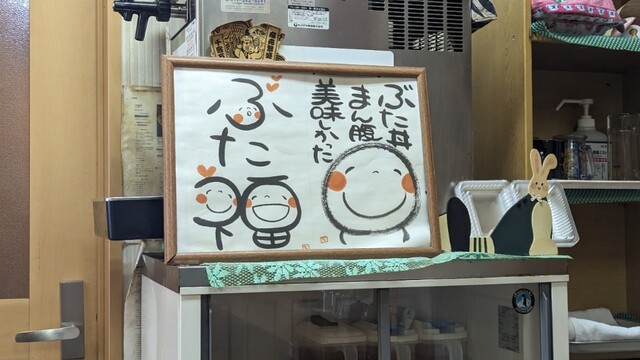 ぶた丼
まん腹
美味しかった
ぶた福